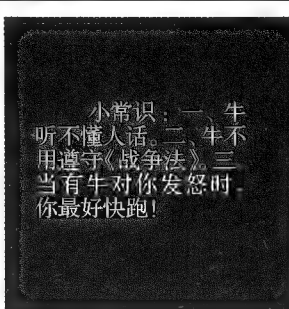 小常识：一、牛
听不懂人话。二、牛不
用遵守《战争法》。三、
当有牛对你发怒时，
你最好快跑！